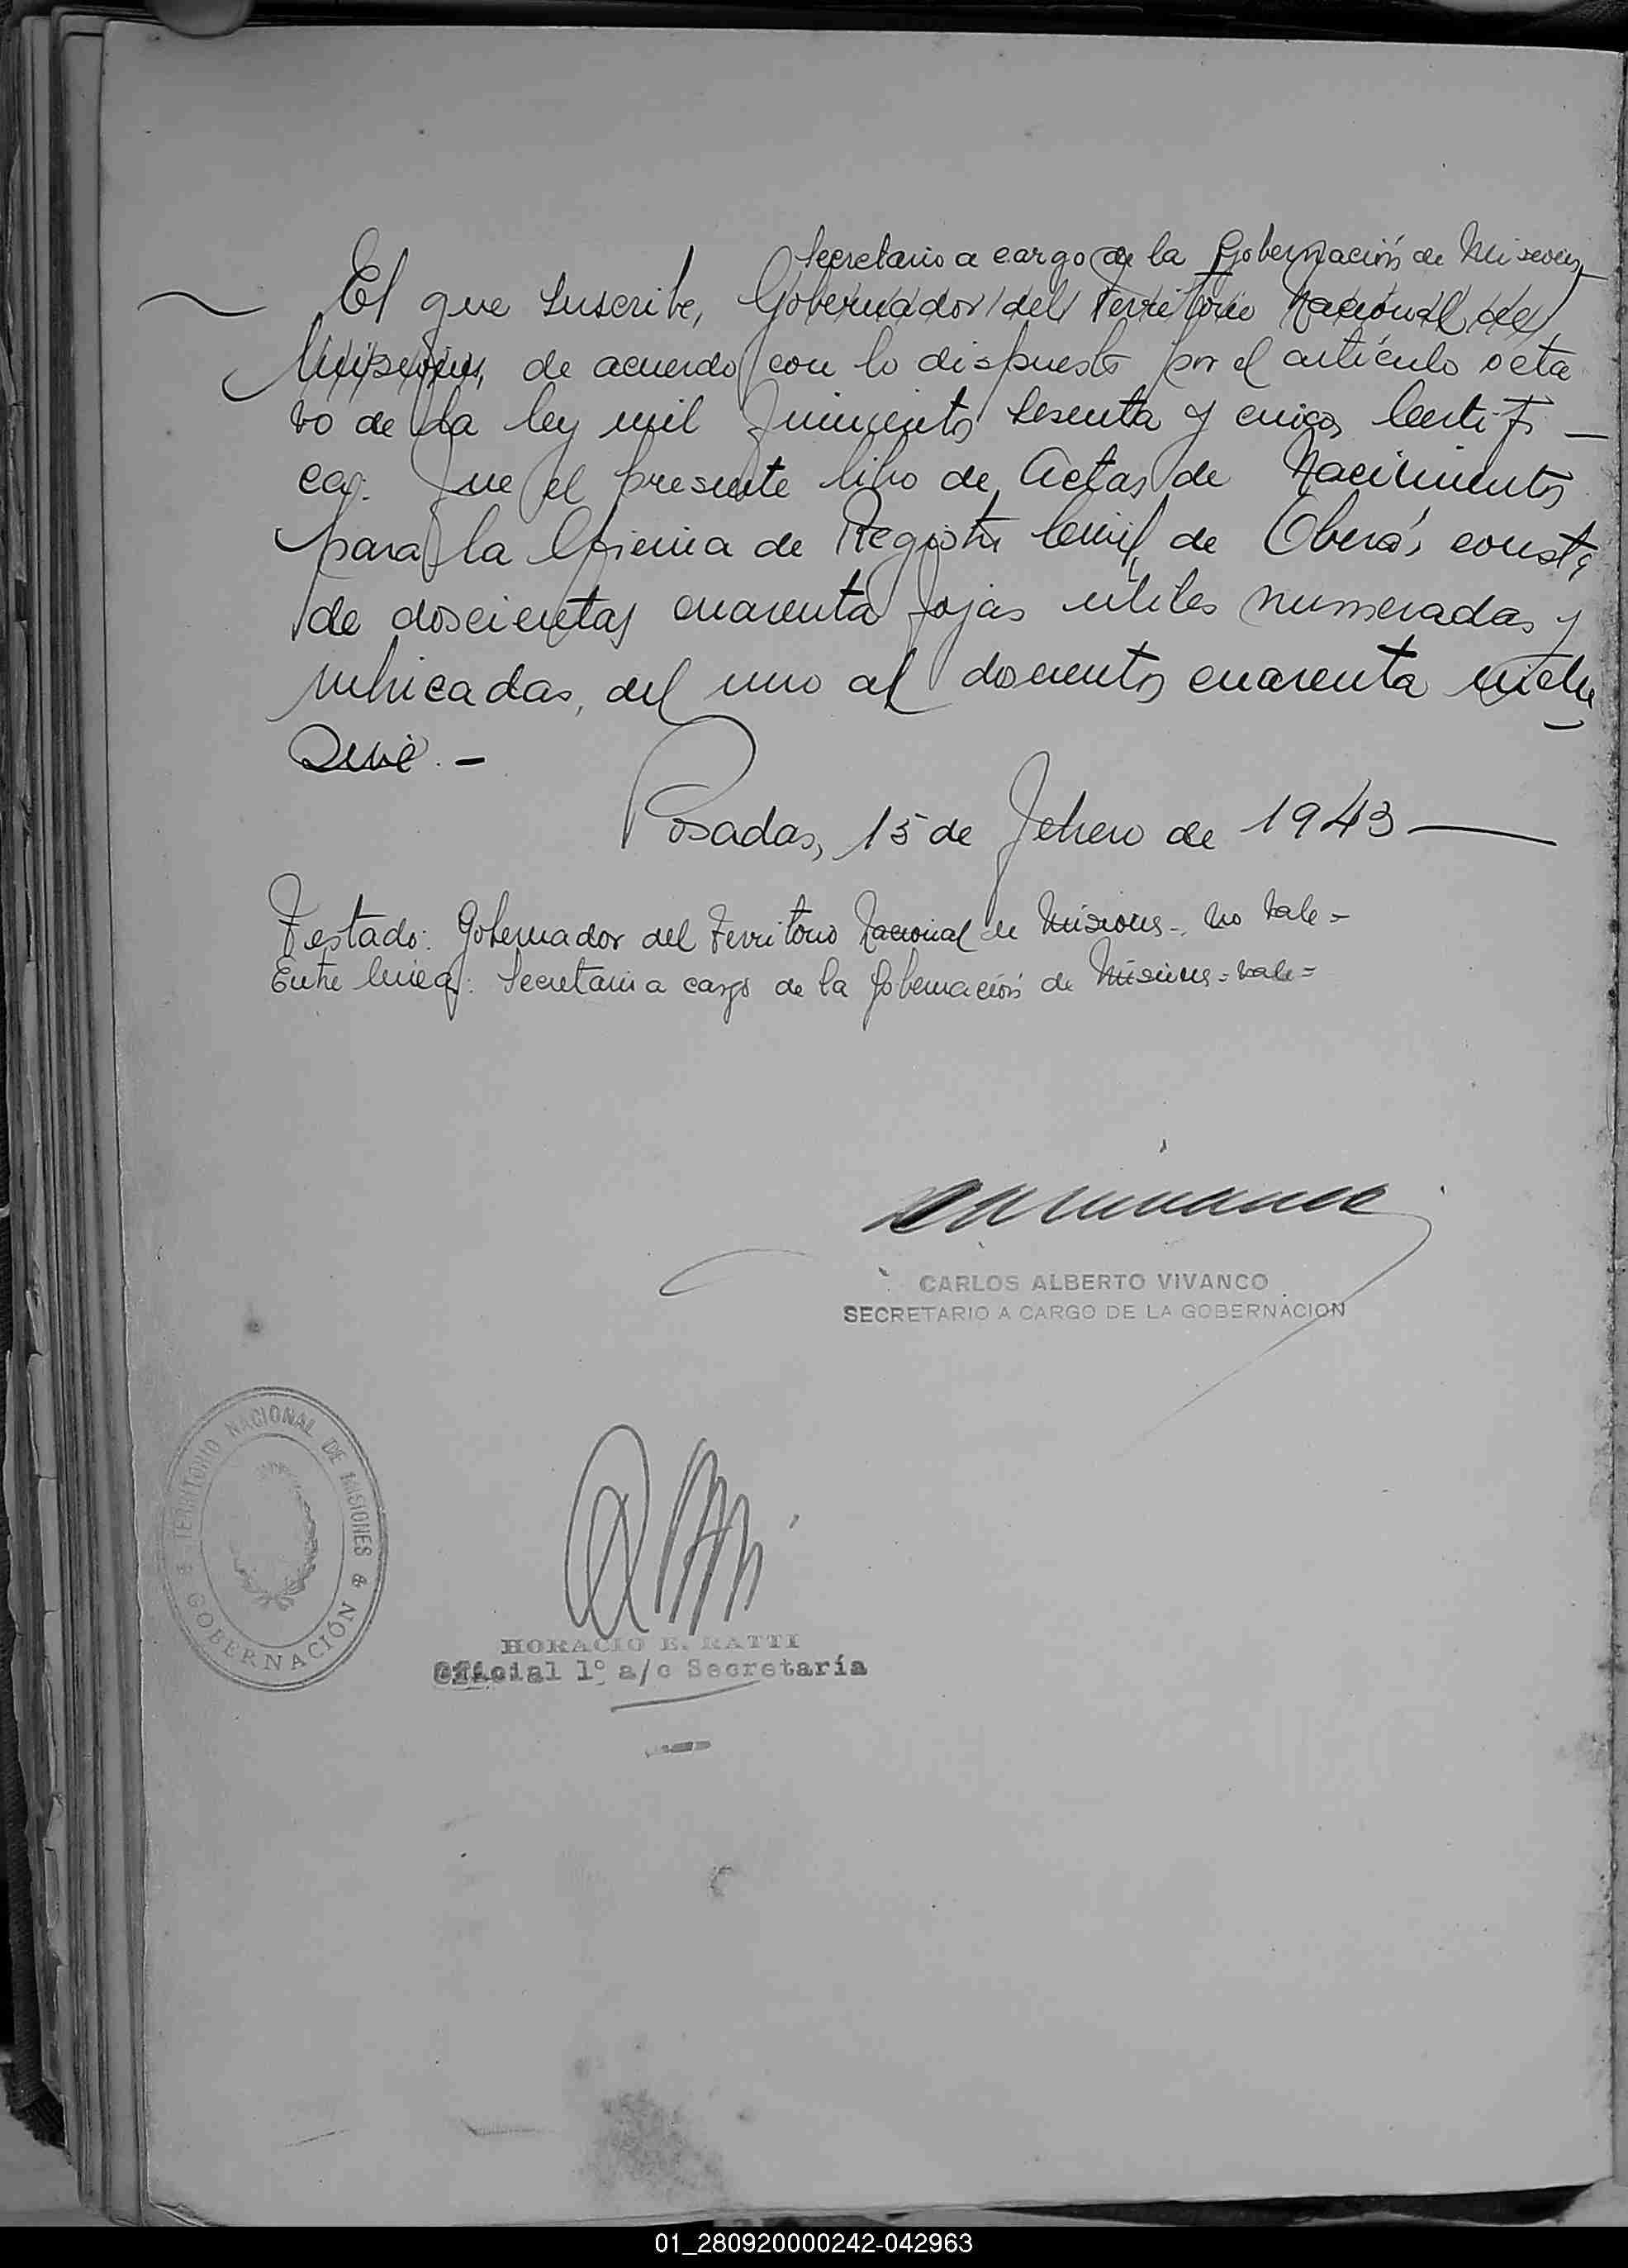 Secretario a cargo de la Gobernación de Misiones
El que suscribe, Gobernador del Territorio Nacional de
Misiones, de acuerdo con lo dispuesto por el artículo octa
vo de la ley mil quinientos sesenta y cinco, Certifi-
ca: Que el presente libro de Actas de Nacimientos
para la Oficina de Registro Civil de Oberá, consta
de doscientas cuarenta fojas útiles numeradas y
rubricadas, del uno al doscientos cuarenta inclu
sive.-
Posadas, 15 de Febrero de 1943
Testado: Gobernador del Territorio Nacional de Misiones-. No Vale=
Entre lineas: Secretario a cargo de la Gobernación de Misiones=vale=
CARLOS ALBERTO VIVANCO
SECRETARIO A CARGO DE LA GOBERNACION
TERRITORIO NACIONAL DE MISIONES
GOBERNACIÓN
HORACIO E. RATTI
Oficial 1º a/c Secretaría
01_280920000242-042963